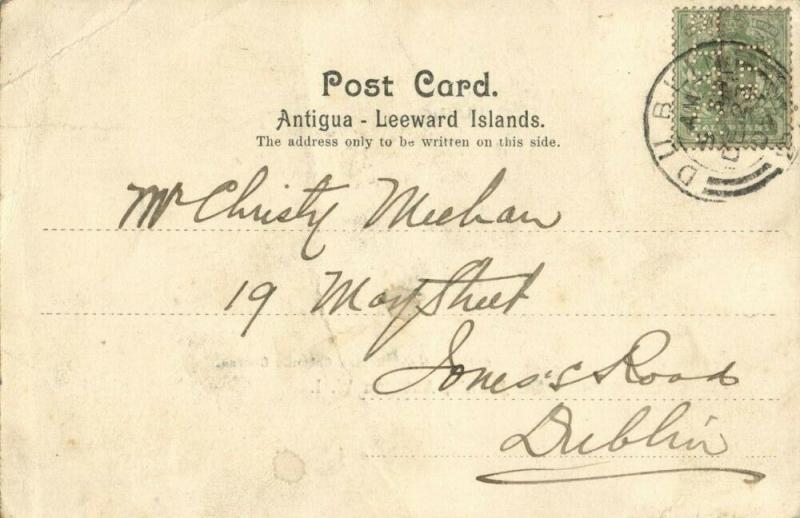 Post Card.
Antigua - Leeward Islands.
The address only to be written on this side.
DUBLIN
Mr Christy Meehan
19 May Street
Jones's Road
Dublin